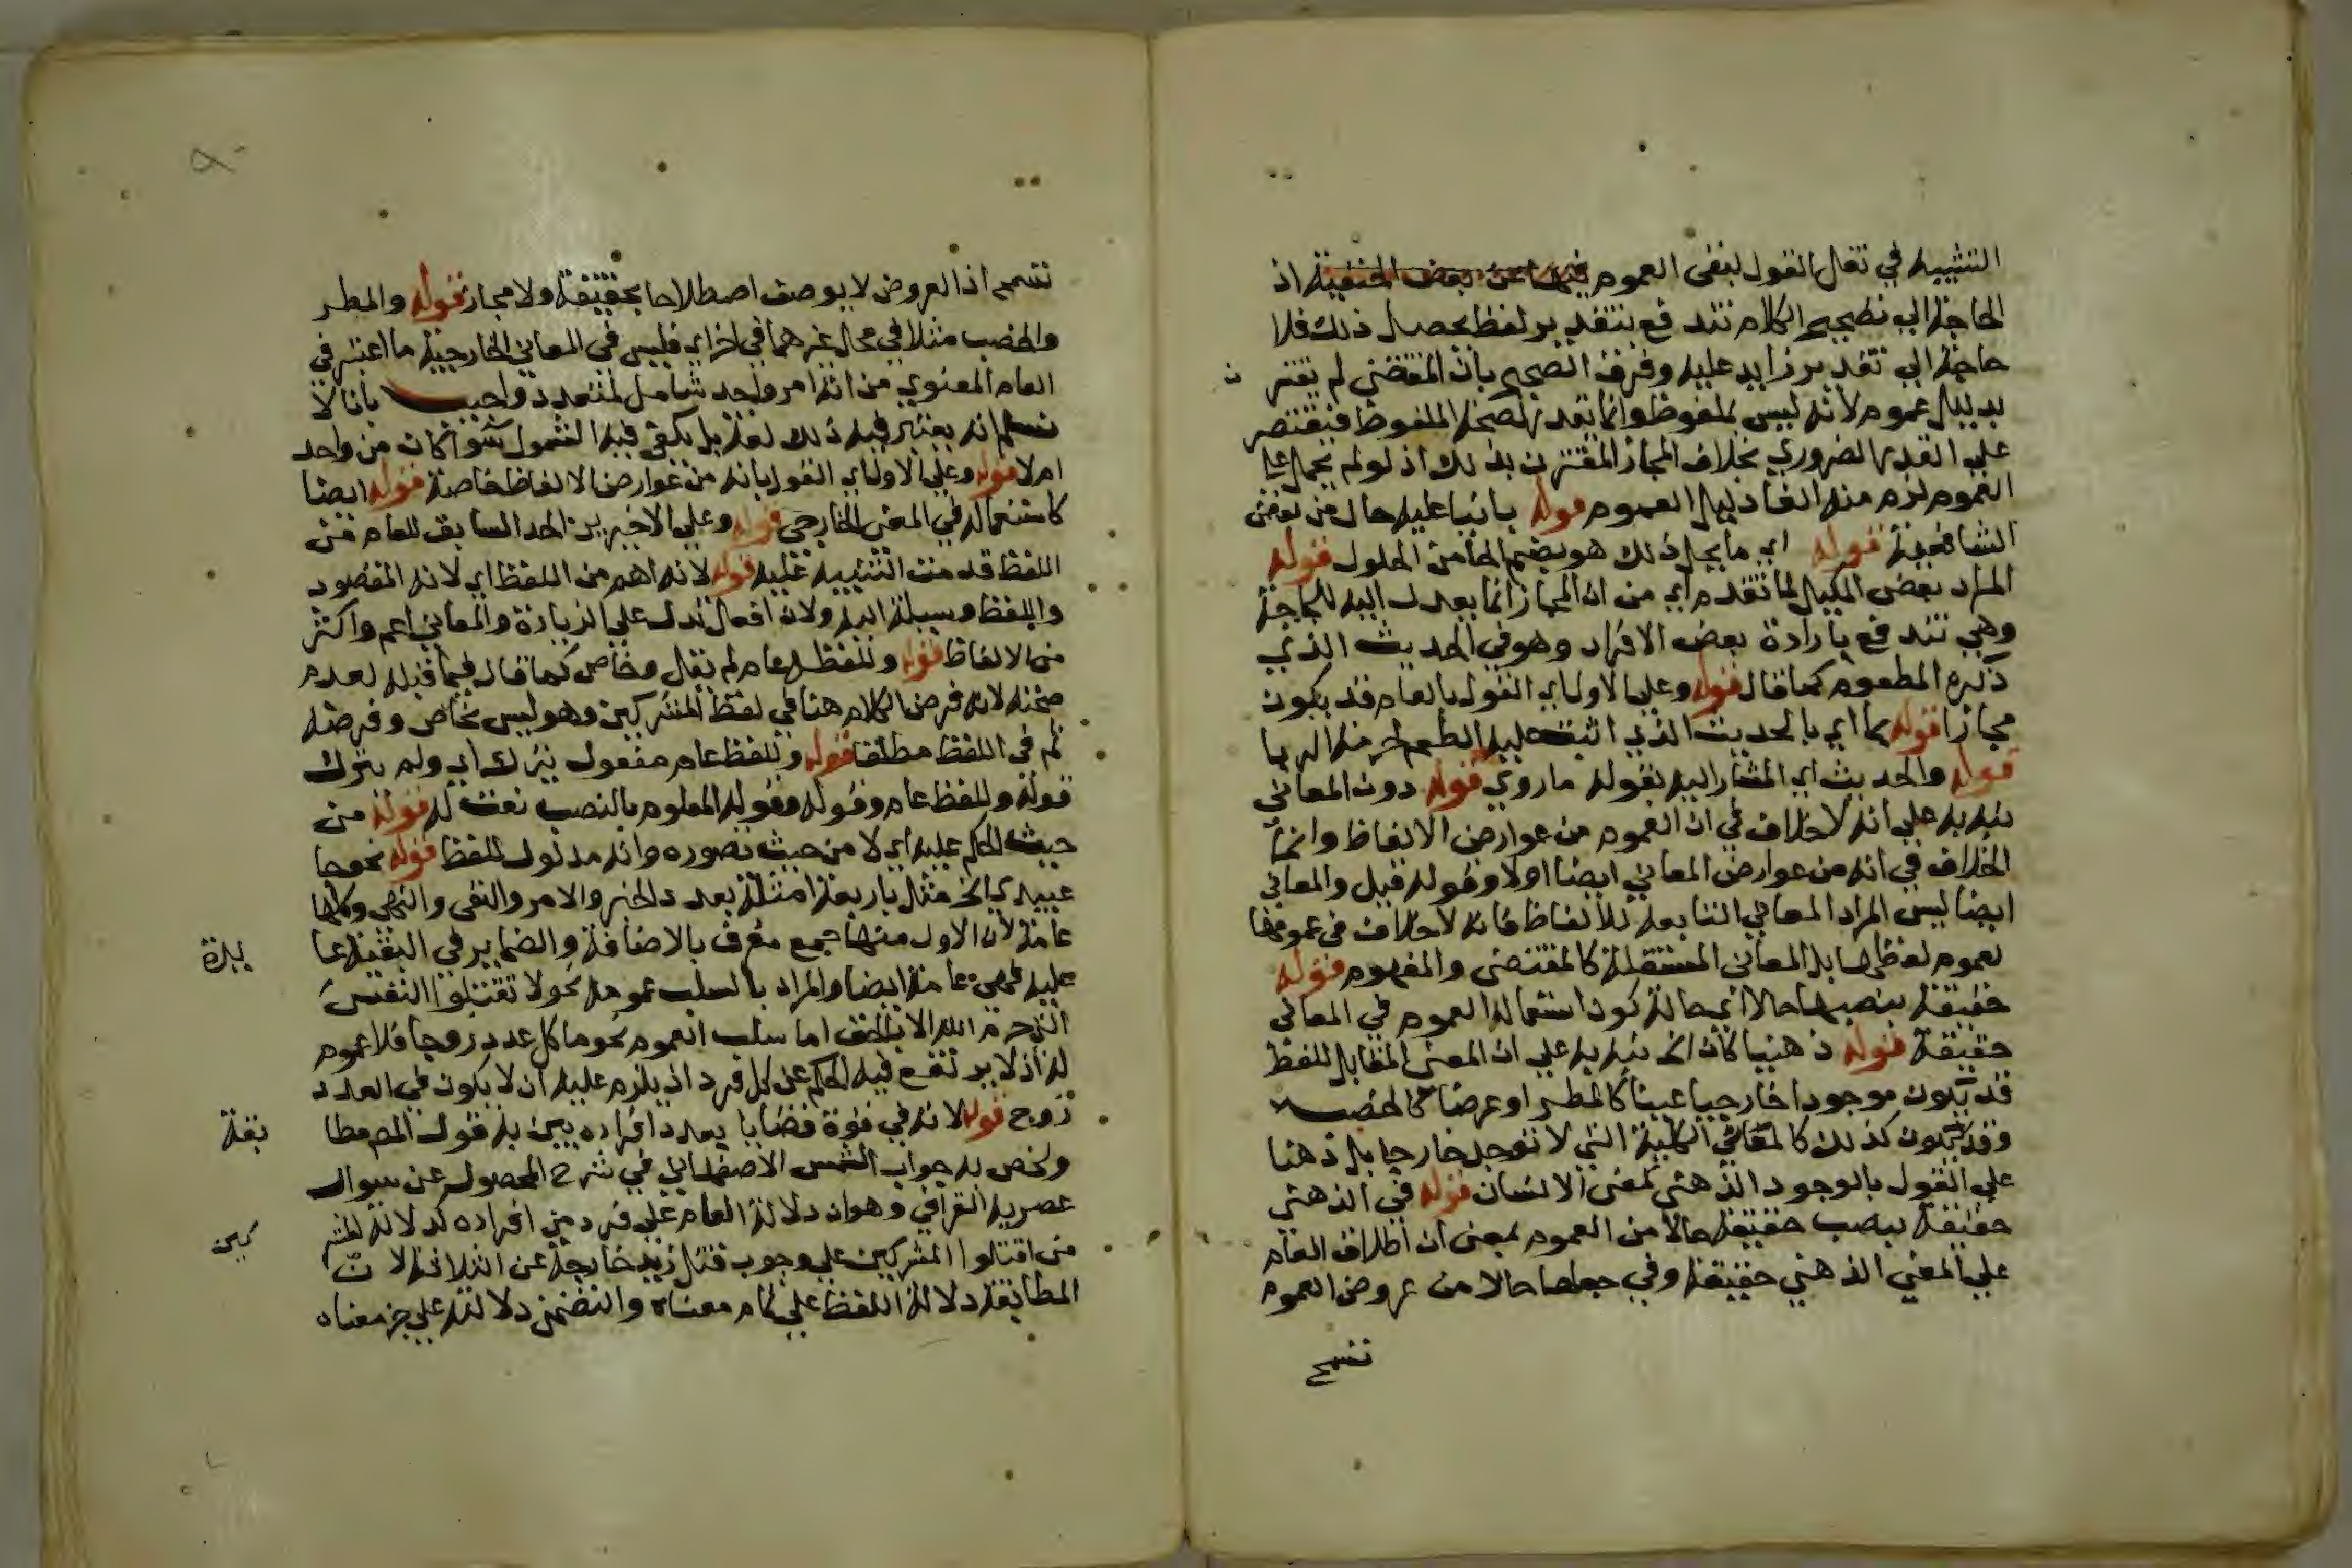 التشبيه في نقل القول بنفي العموم فيها عن بعض الحنفية اذ
الحاجة الى تصحيح الكلام تندفع بتقدير لفظ يحصل ذلك فلا
حاجة الى تقدير زايد عليه وفرق الصحيح بان المقتضي لم يقتر ن
بدليل عموم لانه ليس بملفوظ وانما يقدر لصحة الملفوظ فيقتصر
على القدر الضروري بخلاف المجاز المقترن بذلك اذ لو لم يحمل على
العموم لزم منه الغا دليل العموم قوله بانيا عليه حال من بعض
الشافعية قوله اي ما يحل ذلك هو بضم الحا من الحلول قوله
المراد بعض المكيل لما تقدم اي من ان المجاز انما يعدل اليه للحاجة
وهي تندفع بارادة بعض الافراد وهو في الحديث الذي
ذكره المطعوم كما قال قوله وعلى الاول اي القول بالعام قد يكون
مجازا قوله بما اي بالحديث الذي اثبت علية الطعم لحرمة الربا
قوله والحديث اي المشار اليه بقوله ما روي قوله دون المعاني
نبه به على انه لا خلاف في ان العموم من عوارض الالفاظ وانما
الخلاف في انه من عوارض المعاني ايضا اولا وقوله قبل والمعاني
ايضا ليس المراد المعاني التابعة للالفاظ فانه لا خلاف في عمومها
لعموم لفظها بل المعاني المستقلة كالمقتضى والمفهوم قوله
حقيقة بنصبها حالا اي حالة كون استعمال العموم في المعاني
حقيقة قوله ذهنيا كان الخ نبه به على ان المعنى المقابل للفظ
قد يكون موجودا خارجيا عينا كالمطر او عرضا كالخصب
وقد يكون كذلك كالمعاني الكلية التي لا توجد خارجا بل ذهنا
على القول بالوجود الذهني كمعنى الانسان قوله في الذهني
حقيقة بنصب حقيقة حالا من العموم بمعنى ان اطلاق العام
على المعنى الذهني حقيقة وفي جعلها حالا من عروض العموم
تسمح
تسمح اذ العروض لا يوصف اصطلاحا بحقيقة ولا مجاز قوله والمطر
والخصب مثلا في محل غيرهما في اخر اي فليس في المعاني الخارجية ما اعتبر في
العام المعنوي من انه امر واحد شامل لمتعدد واجيب بانا لا
نسلم انه يعتبر فيه ذلك لغة بل يكفي فيه الشمول سوا كان من واحد
ام لا قوله وعلى الاول اي القول بانه من عوارض الالفاظ خاصة قوله ايضا
كاستعماله في المعنى الخارجي قوله وعلى الاخيرين الحد السابق للعام من
اللفظ قدمت التنبيه عليه قوله لانه اهم من اللفظ اي لانه المقصود
واللفظ وسيلة اليه ولان افعل تدل على الزيادة والمعاني اعم واكثر
من الالفاظ قوله وللفظ عام لم يقل وخاص كما قال فيما قبله لعدم
صحته لانه فرض الكلام هنا في لفظ المشركين وهو ليس بخاص وفرضه
ثم في اللفظ مطلقا قوله وللفظ عام مفعول يترك اي ولم يترك
قوله وللفظ عام وقوله وقوله المعلوم بالنصب نعت له قوله من
حيث الحكم عليه اي لا من حيث تصوره وانه مدلول للفظ قوله نحو جا
عبيدي الخ مثل باربعة امثلة بعد دالخبر والامر والنفي والنهي وكلها
عامة لان الاول منها جمع معرف بالاضافة والضماير في البقية عا يدة
عليه فهي عامة ايضا والمراد بالسلب عمومه نحو ولا تقتلوا النفس
التي حرم الله الا بالحق اما سلب العموم نحو ما كل عدد زوجا فلا عموم
له اذ لا يرتفع فيه الحكم عن كل فرد اذ يلزم عليه ان لا يكون في العدد
زوج قوله لانه في قوة قضايا بعدد افراده يبين به قول المص مطا بقة
ولخص به جواب الشمس الاصفهاني في شرح المحصول عن سوال
عصريه القرافي وهو ان دلالة العام على فرد من افراده كدلالة المشر كين
من اقتلوا المشركين على وجوب قتل زيد خارجة عن الثلاثة لان
المطابقة دلالة اللفظ على تمام معناه والتضمن دلالته على جز معناه